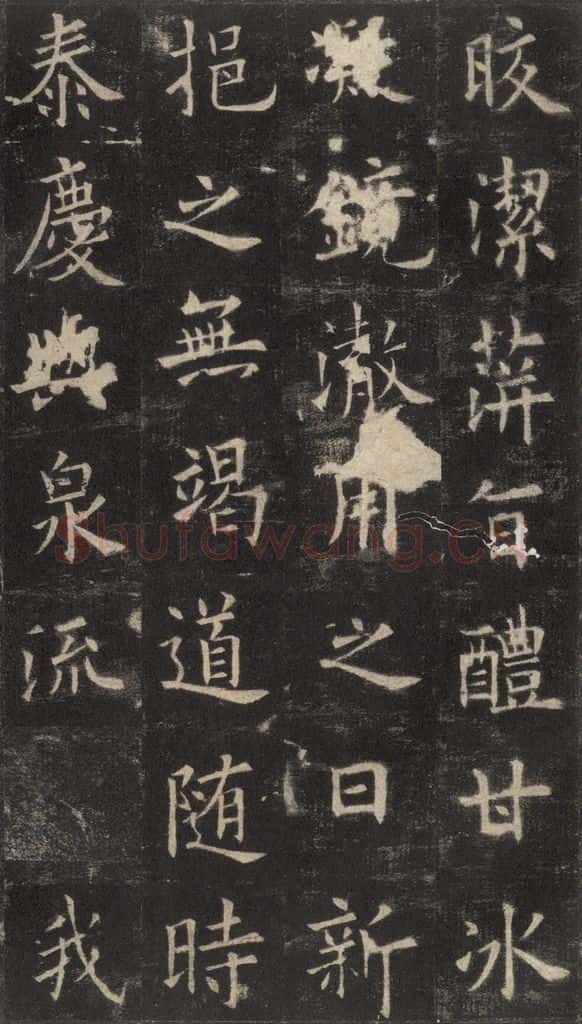 皎潔蓱旨醴甘冰
凝鏡澈用之日新
挹之無竭道随時
泰慶與泉流我
Shufawang.cn